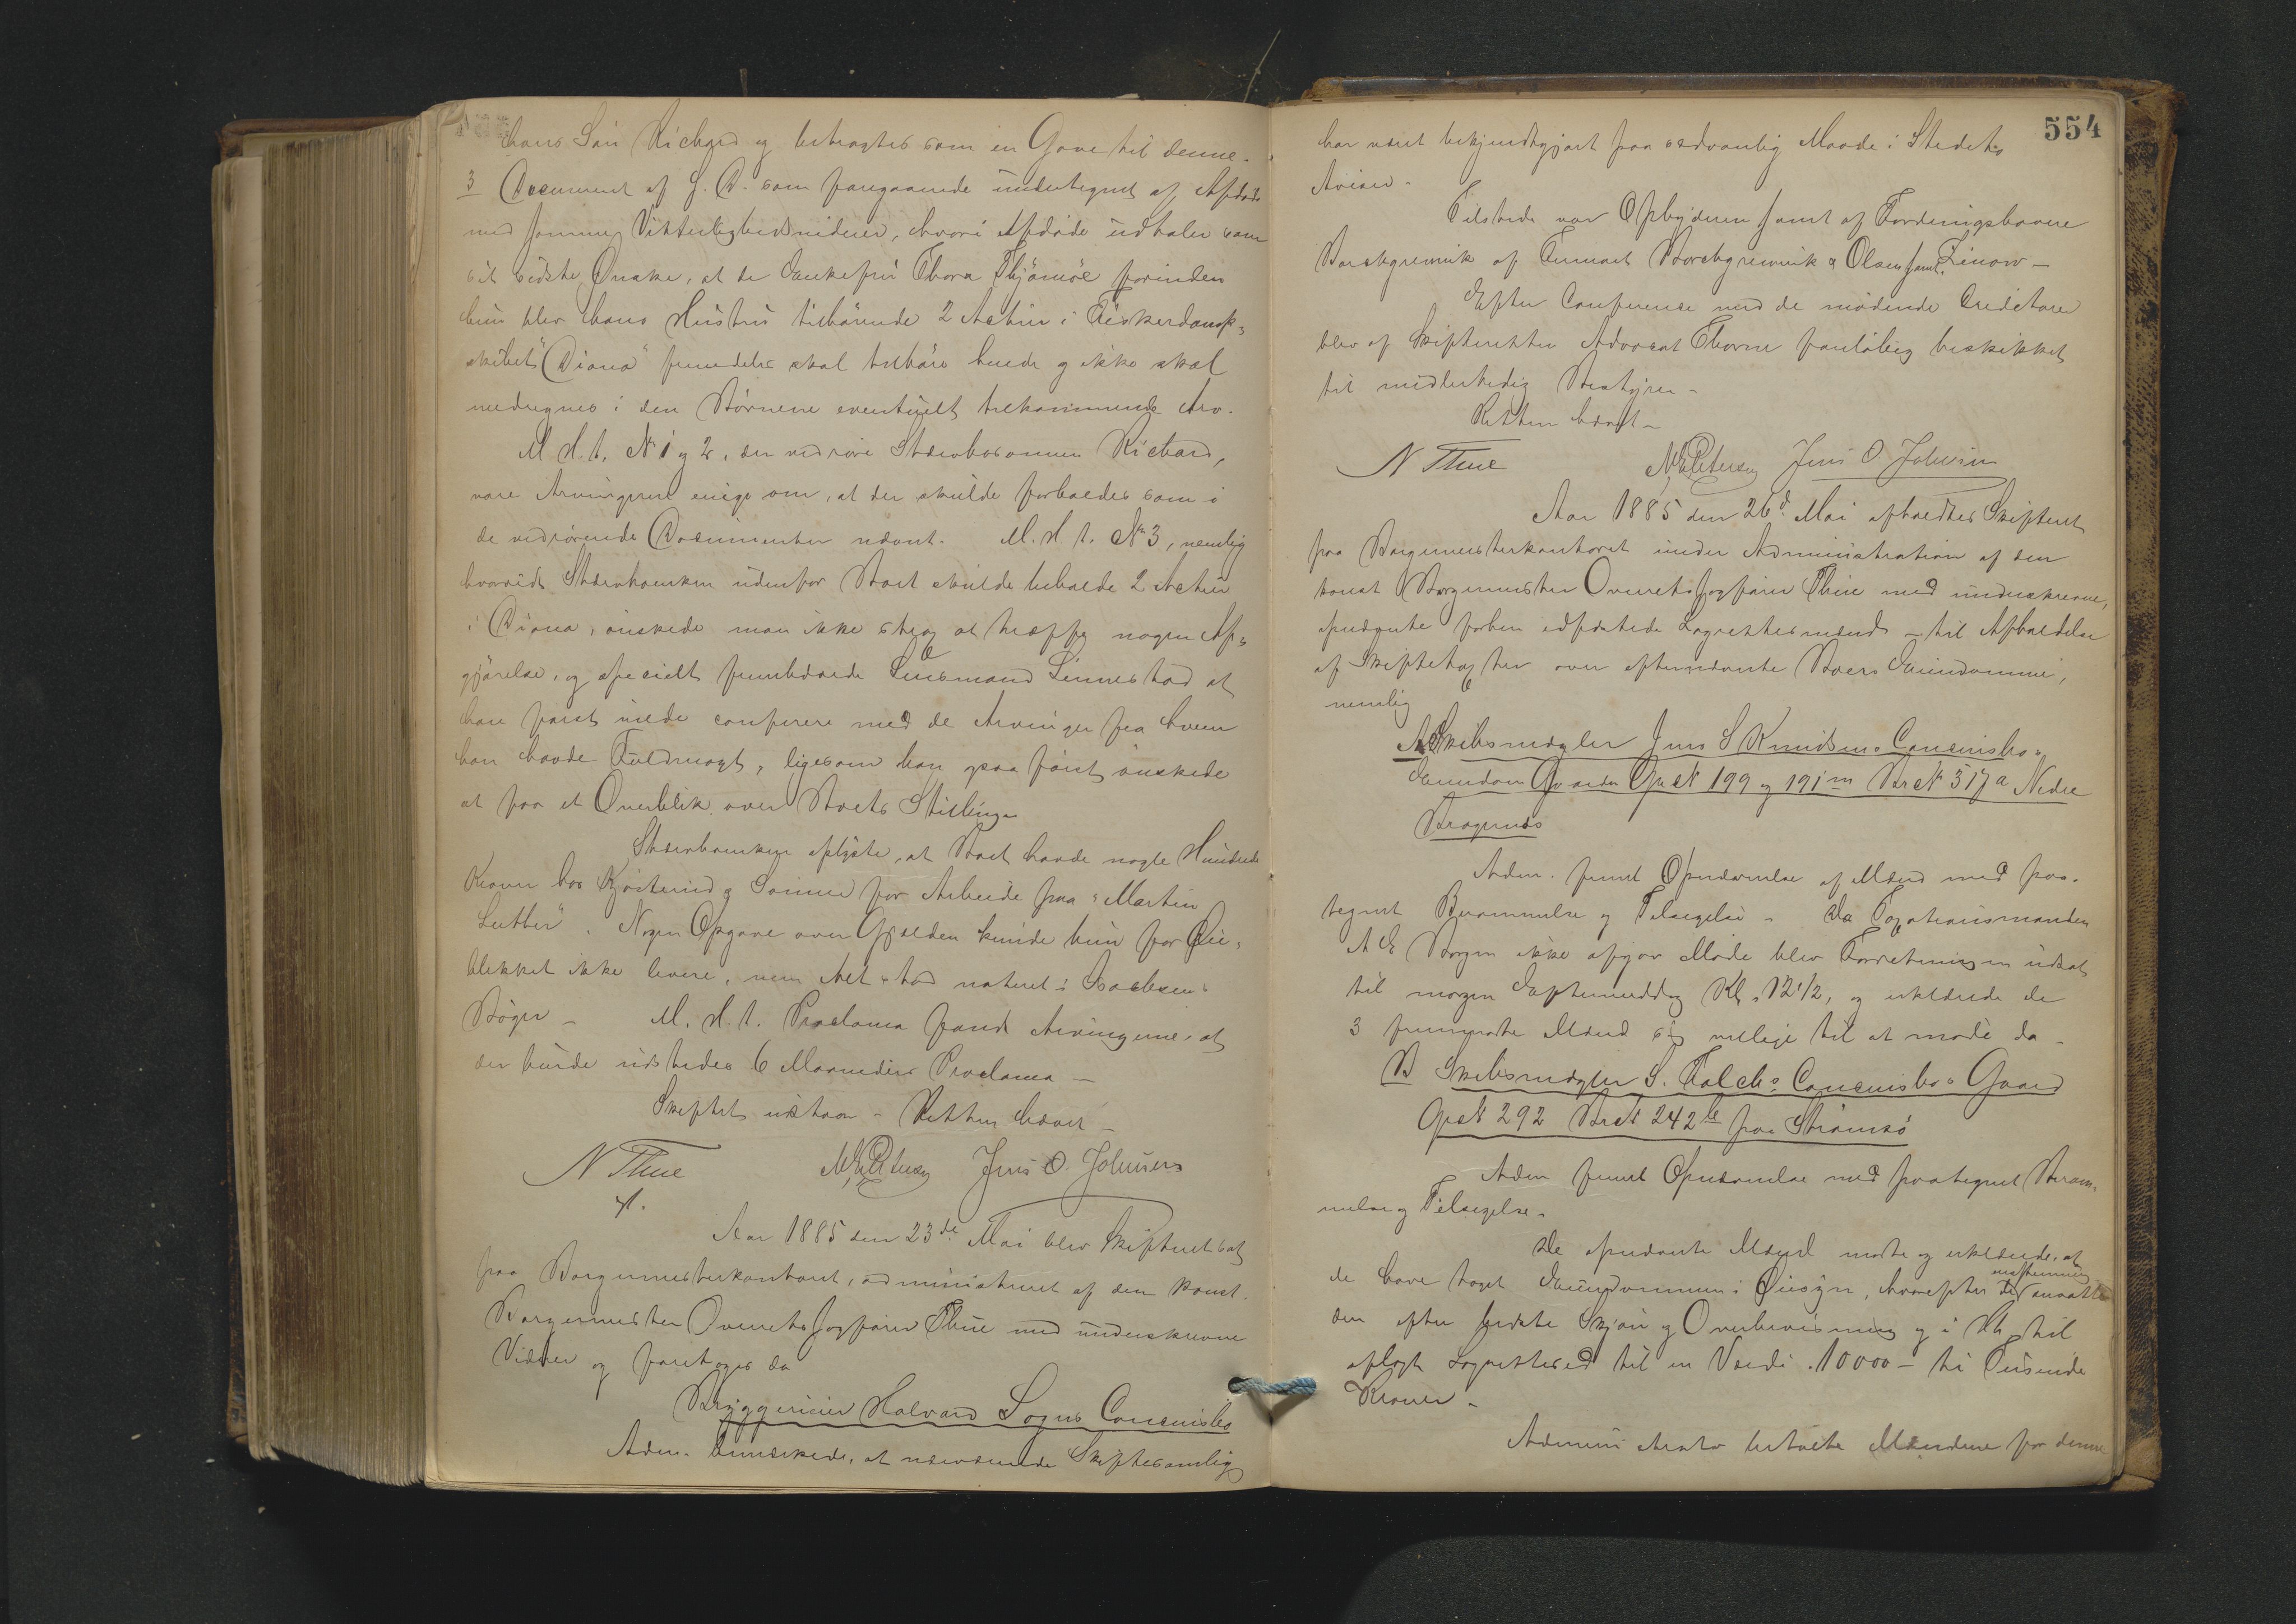 hans Søn Richard og betragtes som en Gave til denne.
3 Document af G. D. som foregaaende undertegnet af Afdøde
med samme Vitterlighedsvidner, hvori Afdøde udtaler som
sit sidste Ønske, at de Enkefru Thora Thjømøe forinden
hun blev hans Hustru tilhørende 2 Actier i Fiskerdamp-
skibet "Diana" fremdeles skal tilhøre hende og ikke skal
medregnes i den Børnene eventuelt tilkommende Arv.
M. H. t. N 1 og 2, der vedrøre Stervbosønnen Richard,
vare Arvingerne enige om, at der skulde forholdes som i
de vedrørende Documenter nævnt. M. H. t. N 3, nemlig
hvorvidt Stervboenken udenfor Boet skulde beholde 2 Actier
i Diana, ønskede man ikke strax at træffe nogen Af-
gjørelse, og specielt fremholdt Lensmand Linnestad at
han først vilde conferere med de Arvinger fra hvem
han havde Fuldmagt, ligesom han ogsaa først ønskede
at faa et Overblik over Boets Stilling.
Stervboenken oplyste, at Boet havde nogle Hundrede
Kroner hos Kjøsterud og Sønner for Arbeide paa "Martin
Luther". Nogen Opgave over Gjælden kunde hun for Øie-
blikket ikke levere, men Alt stod noteret i
Bøger – M. H. t. Proclama fandt Arvingerne, at
der burde udstedes 6 Maaneders Proclama –
Skiftet udstaar – Retten hævet –
N Thue Petersen Jens O. Johnsen
Aar 1885 den 23de Mai blev Skifteret sat
paa Borgermesterkontoret, administreret af den konst.
Borgermester Overretssagfører Thue med underskrevne
Vidner og foretoges da
Bryggerieier Halvard Sogns Concursbo
Adm. bemærkede, at nærværende Skiftesamling
554
har været bekjendtgjort paa sædvanlig Maade i Stedets
Aviser.
Tilstede var Opbyderen samt af Fordringshavere
Borchgrevink af Firmaet Borchgrevink & Olsen samt Linow –
Efter Conference med de mødende Creditorer
blev af Skifteretten Advocat Thorne foreløbig beskikket
til midlertidig Bestyrer –
Retten hævet –
N Thue Petersen Jens O Johnsen
Aar 1885 den 26d. Mai afholdtes Skifteret
paa Borgermesterkontoret under Administration af den
konst Borgermester Overretssagfører Thue med underskrevne,
opnævnte forhen edfæstede Lagrettesmænd – til Afholdelse
af Skiftetaxter over efternævnte Boers Eiendomme,
nemlig
A Skibsmægler Jens S Knudsens Concursbos
Eiendom Gpt N 199 og 191 Br N 517a Nedre
Bragernes
Adm. freml Opnævnelse af Mænd med paa-
tegnet Berammelse og Tilsigelse – Da Taxationsmanden
A E Borgen ikke afgav Møde blev Forretningen udsat
til morgen Eftermiddag Kl. 12 1/2, og erklærede de
3 fremmødte Mænd sig villige til at møde da –
B Skibsmægler S. Falchs Concursbos Gaard
Gpt N 292 Br N 242b paa Strømsø
Adm freml Opnævnelse med paategnet Beram-
melse og Tilsigelse.
De opnævnte Mænd mødte og erklærede, at
de have taget Eiendommen i Øiesyn, hvorefter de eenstemmig ansatte
den efter bedste Skjøn og Overbevisning og i Hh til
aflagt Lagrettesed til en Værdi 10000 – ti Tusende
Kroner –
Administrator betalte Mændene for denne